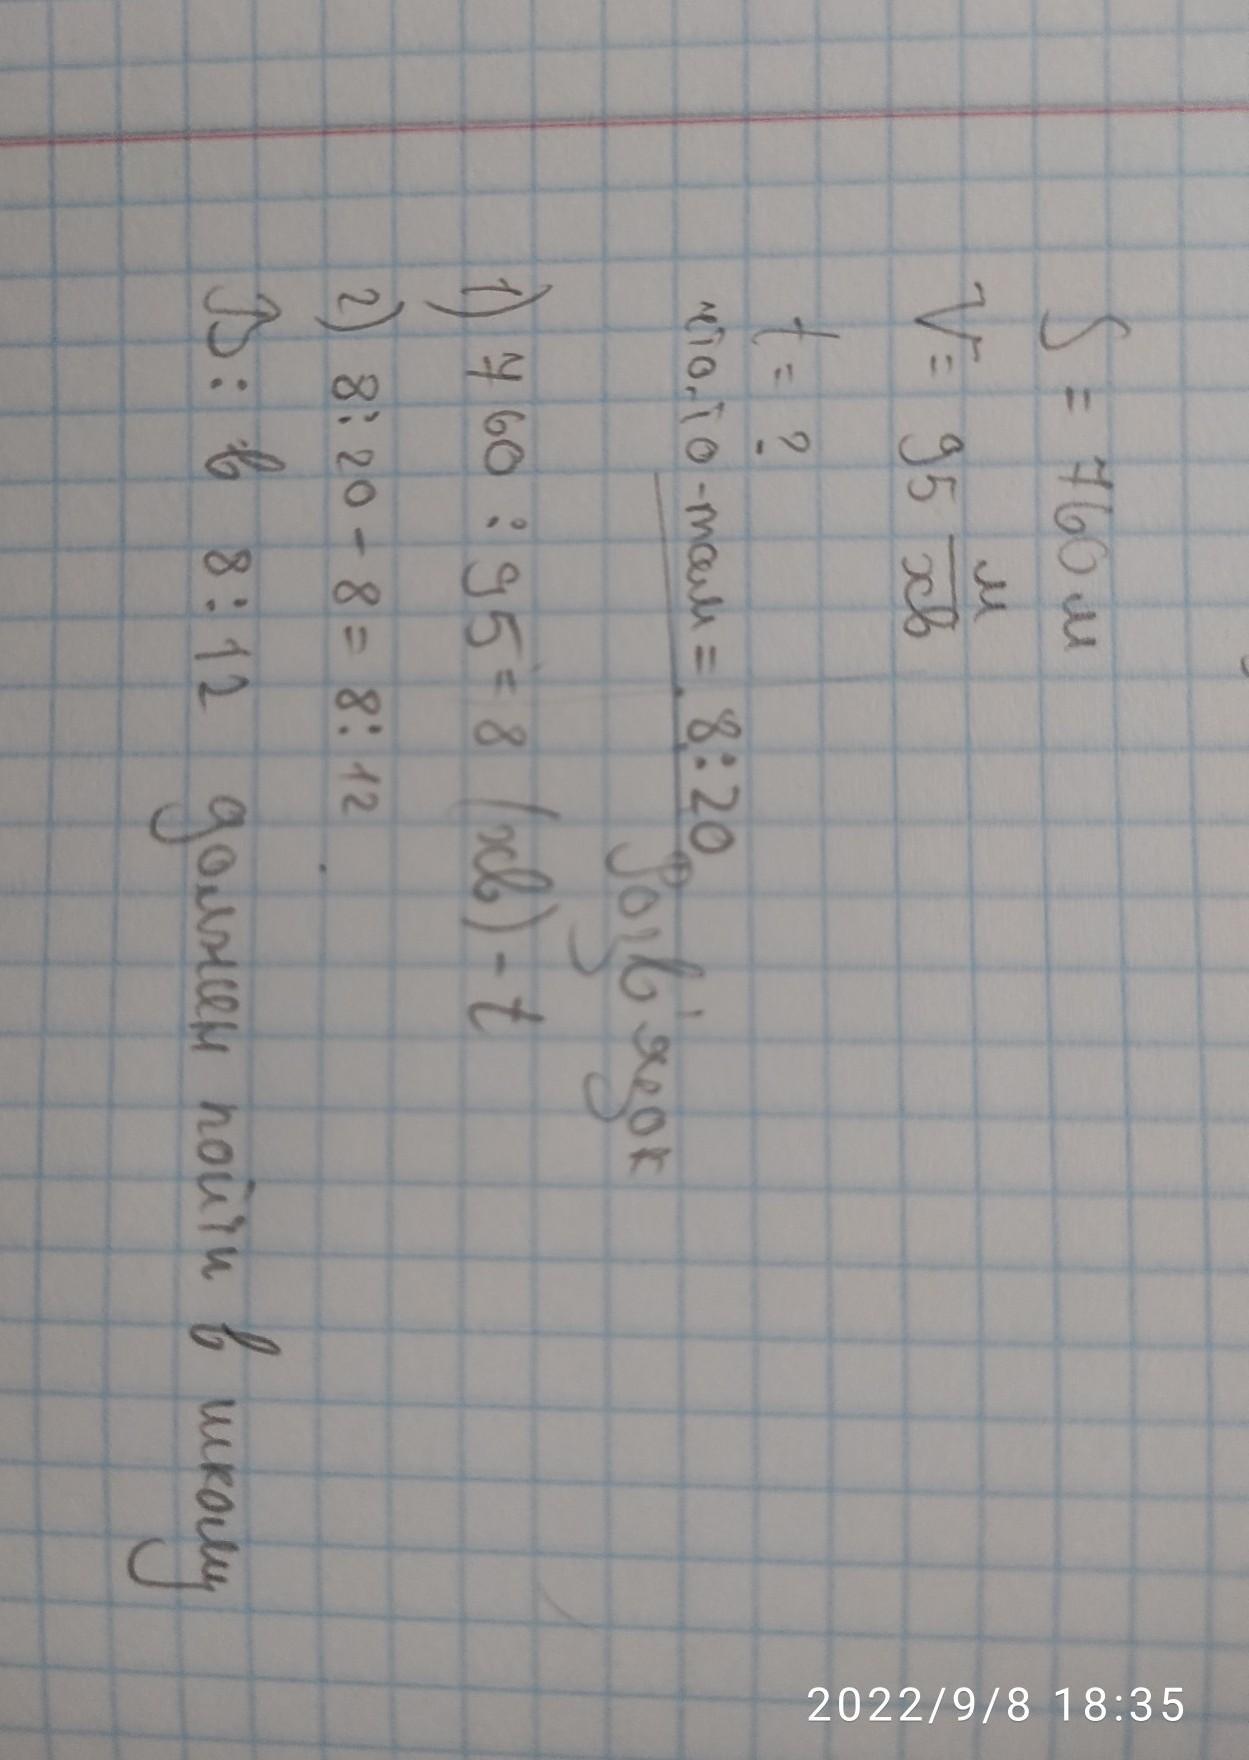 S = 760 м
V = 95 м/хв
t = ?
-там = 8:20
Розв'язок
1) 760 : 95 = 8 (хв) - t
2) 8:20 - 8 = 8:12
В: в 8:12 должен пойти в школу
2022/9/8 18:35